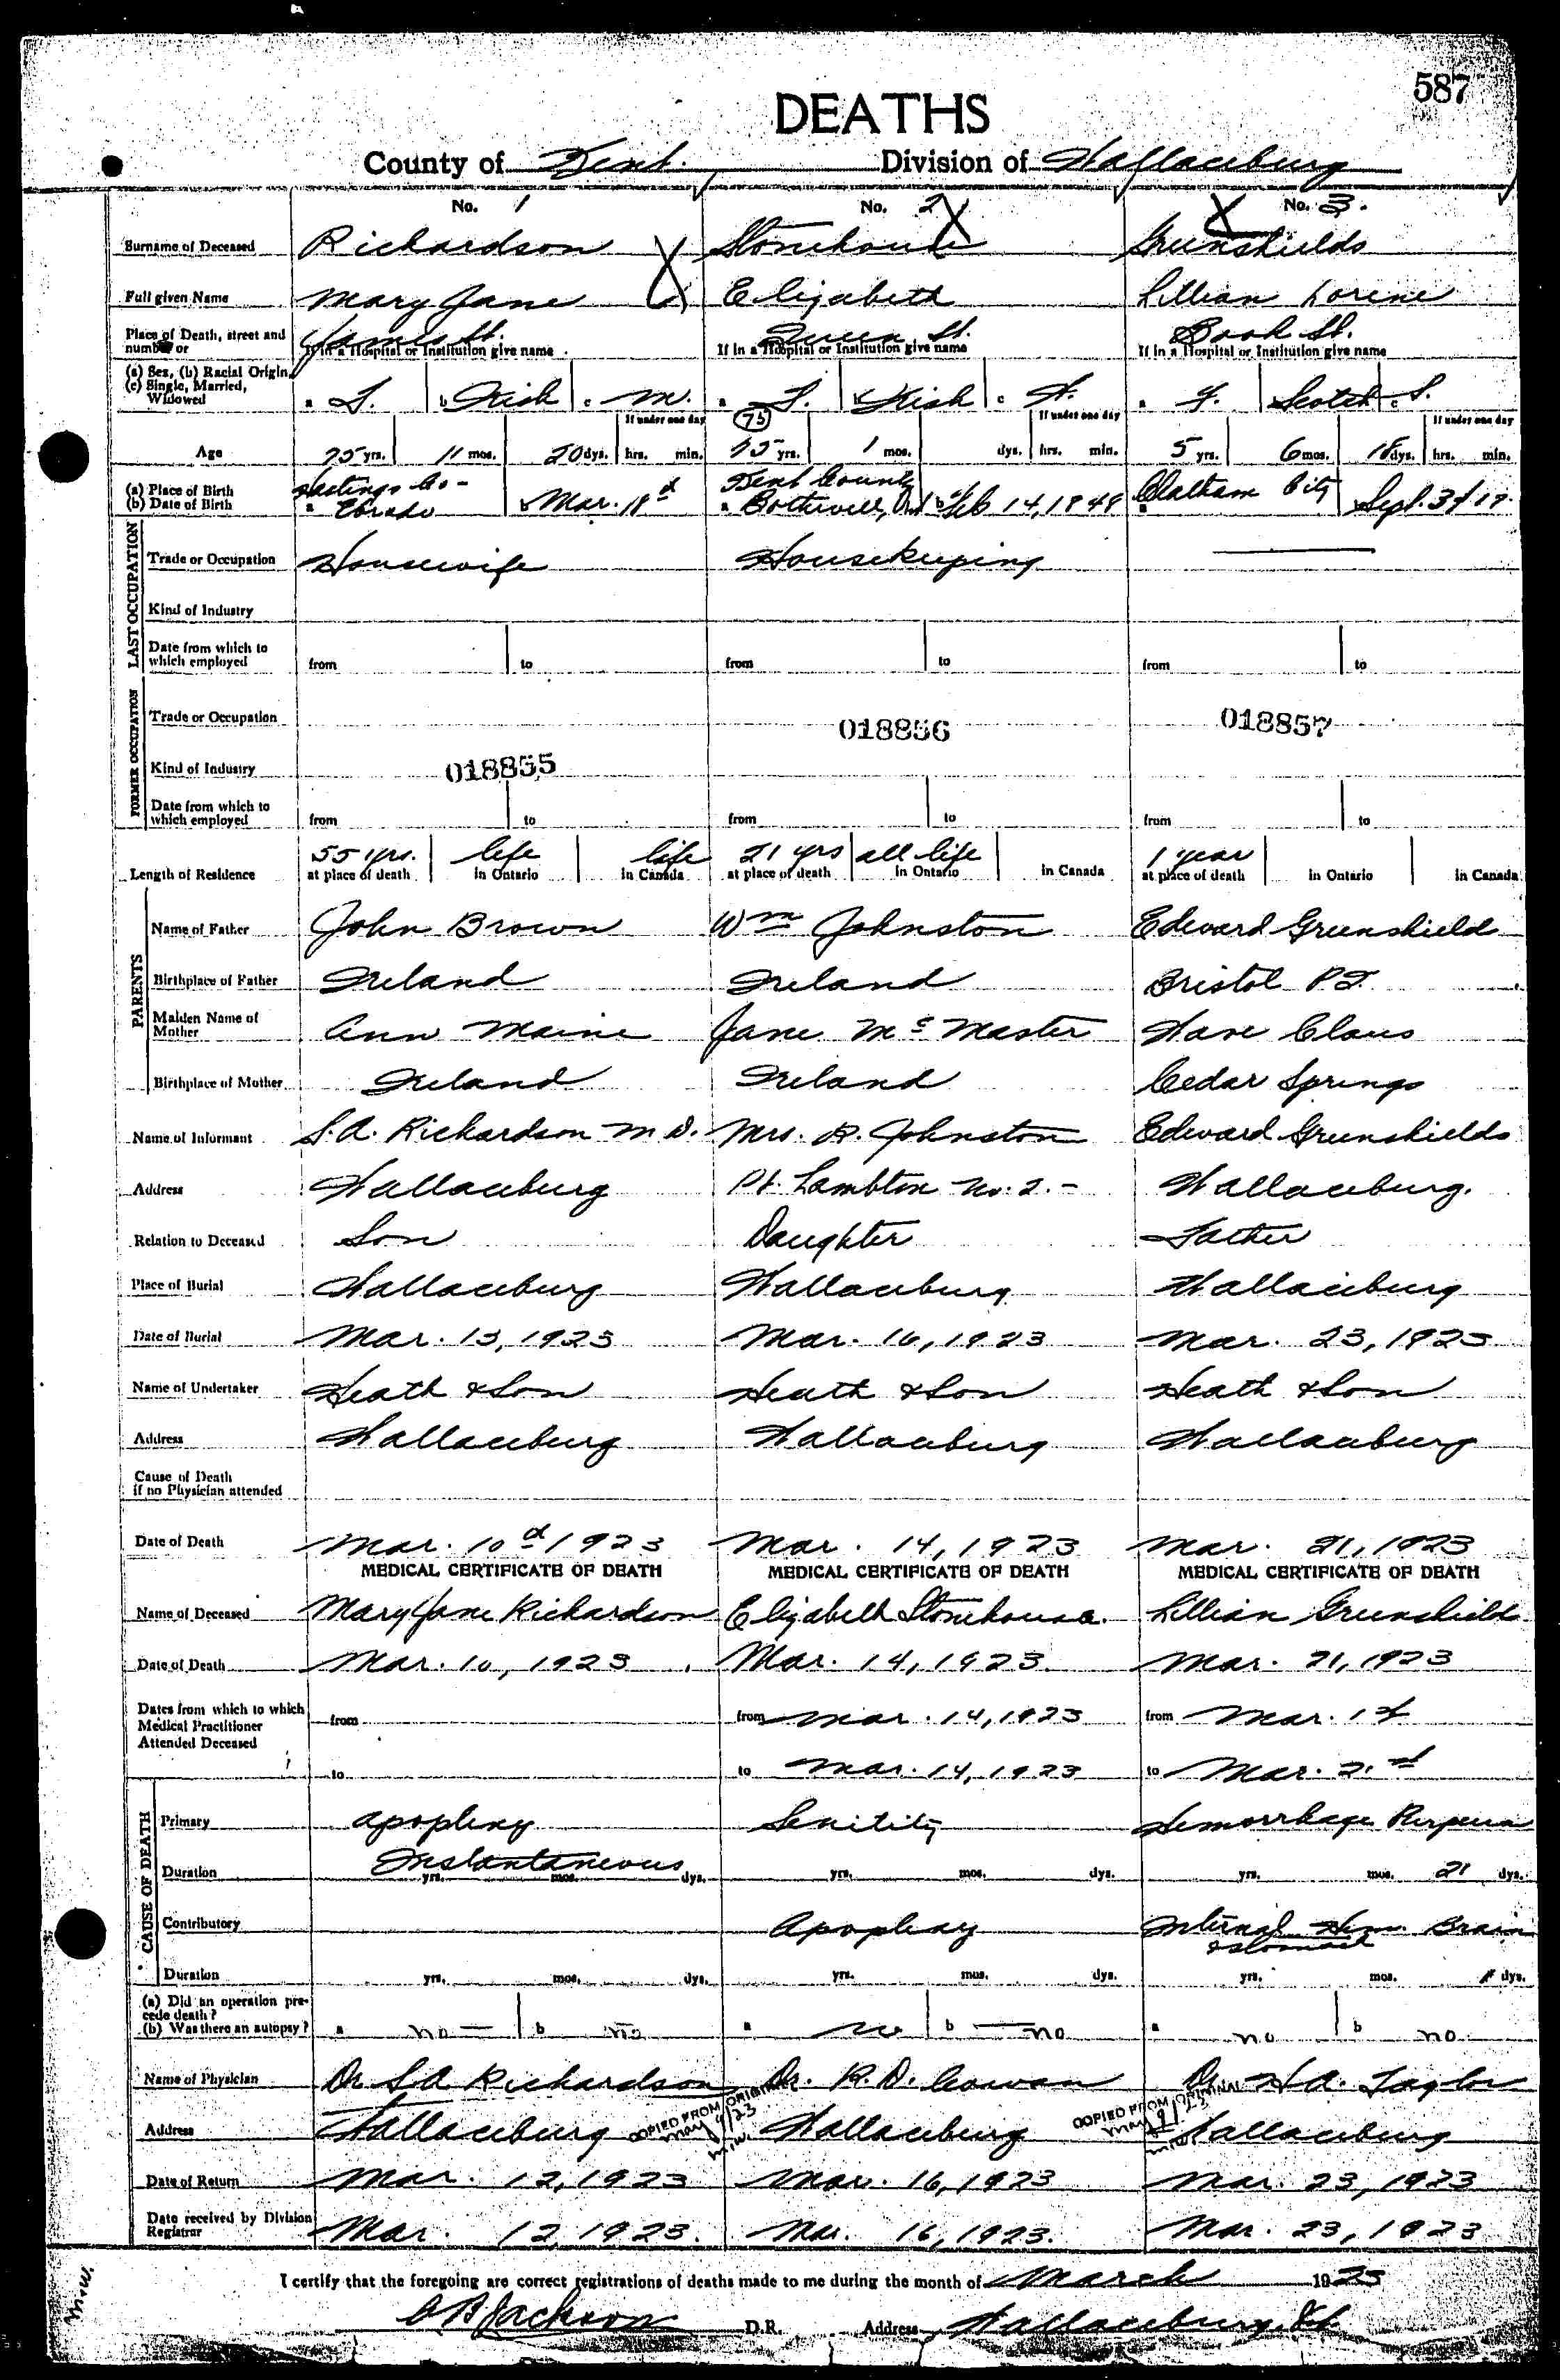 587
DEATHS
County of Kent. Division of Wallaceburg
No. 1 No. 2 No. 3.
Surname of Deceased Richardson Stonehouse Greenshields
Full given Name Mary Jane Elizabeth Lillian Lorine
Place of Death, street and number or James St. Queen St. Book St.
If in a Hospital or Institution give name If in a Hospital or Institution give name If in a Hospital or Institution give name
(a) Sex, (b) Racial Origin, (c) Single, Married, Widowed a F. b Irish c M. a F. b Irish c W. a F. Scotch c S.
If under one day 75 If under one day If under one day
Age 75 yrs. 11 mos. 20 dys. hrs. min. 75 yrs. 1 mos. dys. hrs. min. 5 yrs. 6 mos. 18 dys. hrs. min.
(a) Place of Birth Hastings Co- Kent County Chatham City
(b) Date of Birth a b Mar. 18 a Bothwell, Ont b Feb 14, 1848 a Sept. 3 / 17
LAST OCCUPATION
Trade or Occupation Housewife Housekeeping
Kind of Industry
Date from which to which employed from to from to from to
FORMER OCCUPATION
Trade or Occupation 018856 018857
Kind of Industry 018855
Date from which to which employed from to from to from to
Length of Residence 55 yrs. at place of death life in Ontario life in Canada 21 yrs at place of death all life in Ontario in Canada 1 year at place of death in Ontario in Canada
PARENTS
Name of Father John Brown Wm Johnston Edward Greenshields
Birthplace of Father Ireland Ireland Bristol
Maiden Name of Mother Ann Maine Jane McMaster Claus
Birthplace of Mother Ireland Ireland Cedar Springs
Name of Informant S. A. Richardson M D. Mrs. R. Johnston Edward Greenshields
Address Wallaceburg Pt. Lambton No. 2. - Wallaceburg.
Relation to Deceased Son Daughter Father
Place of Burial Wallaceburg Wallaceburg Wallaceburg
Date of Burial Mar. 13, 1923 Mar. 16, 1923 Mar. 23, 1923
Name of Undertaker Heath & Son Heath & Son Heath & Son
Address Wallaceburg Wallaceburg Wallaceburg
Cause of Death if no Physician attended
Date of Death Mar. 10 1923 Mar. 14, 1923 Mar. 21, 1923
MEDICAL CERTIFICATE OF DEATH MEDICAL CERTIFICATE OF DEATH MEDICAL CERTIFICATE OF DEATH
Name of Deceased Mary Jane Richardson Elizabeth Stonehouse. Lillian Greenshields
Date of Death Mar. 10, 1923 Mar. 14, 1923 Mar. 21, 1923
Dates from which to which Medical Practitioner Attended Deceased from from Mar. 14, 1923 from Mar. 1st
to to Mar. 14, 1923 to Mar. 21
CAUSE OF DEATH
Primary apoplexy Senility Hemorrhage Purpura
Duration Instantaneous yrs. mos. dys. yrs. mos. dys. yrs. mos. 21 dys.
Contributory Apoplexy Internal Hem. Brain & stomach
Duration yrs. mos. dys. yrs. mos. dys. yrs. mos. dys.
(a) Did an operation precede death?
(b) Was there an autopsy? a no b no a no b no a no b no
Name of Physician Dr S A Richardson Dr. R. D. Cowan Dr. H A. Taylor
COPIED FROM ORIGINAL May 9/23 M.W. COPIED FROM ORIGINAL May 9/23 M.W.
Address Wallaceburg Wallaceburg Wallaceburg
Date of Return Mar. 12, 1923 Mar. 16, 1923 Mar. 23, 1923
Date received by Division Registrar Mar. 12, 1923. Mar. 16, 1923. Mar. 23, 1923
I certify that the foregoing are correct registrations of deaths made to me during the month of March 1923
Jackson D.R. Address Wallaceburg